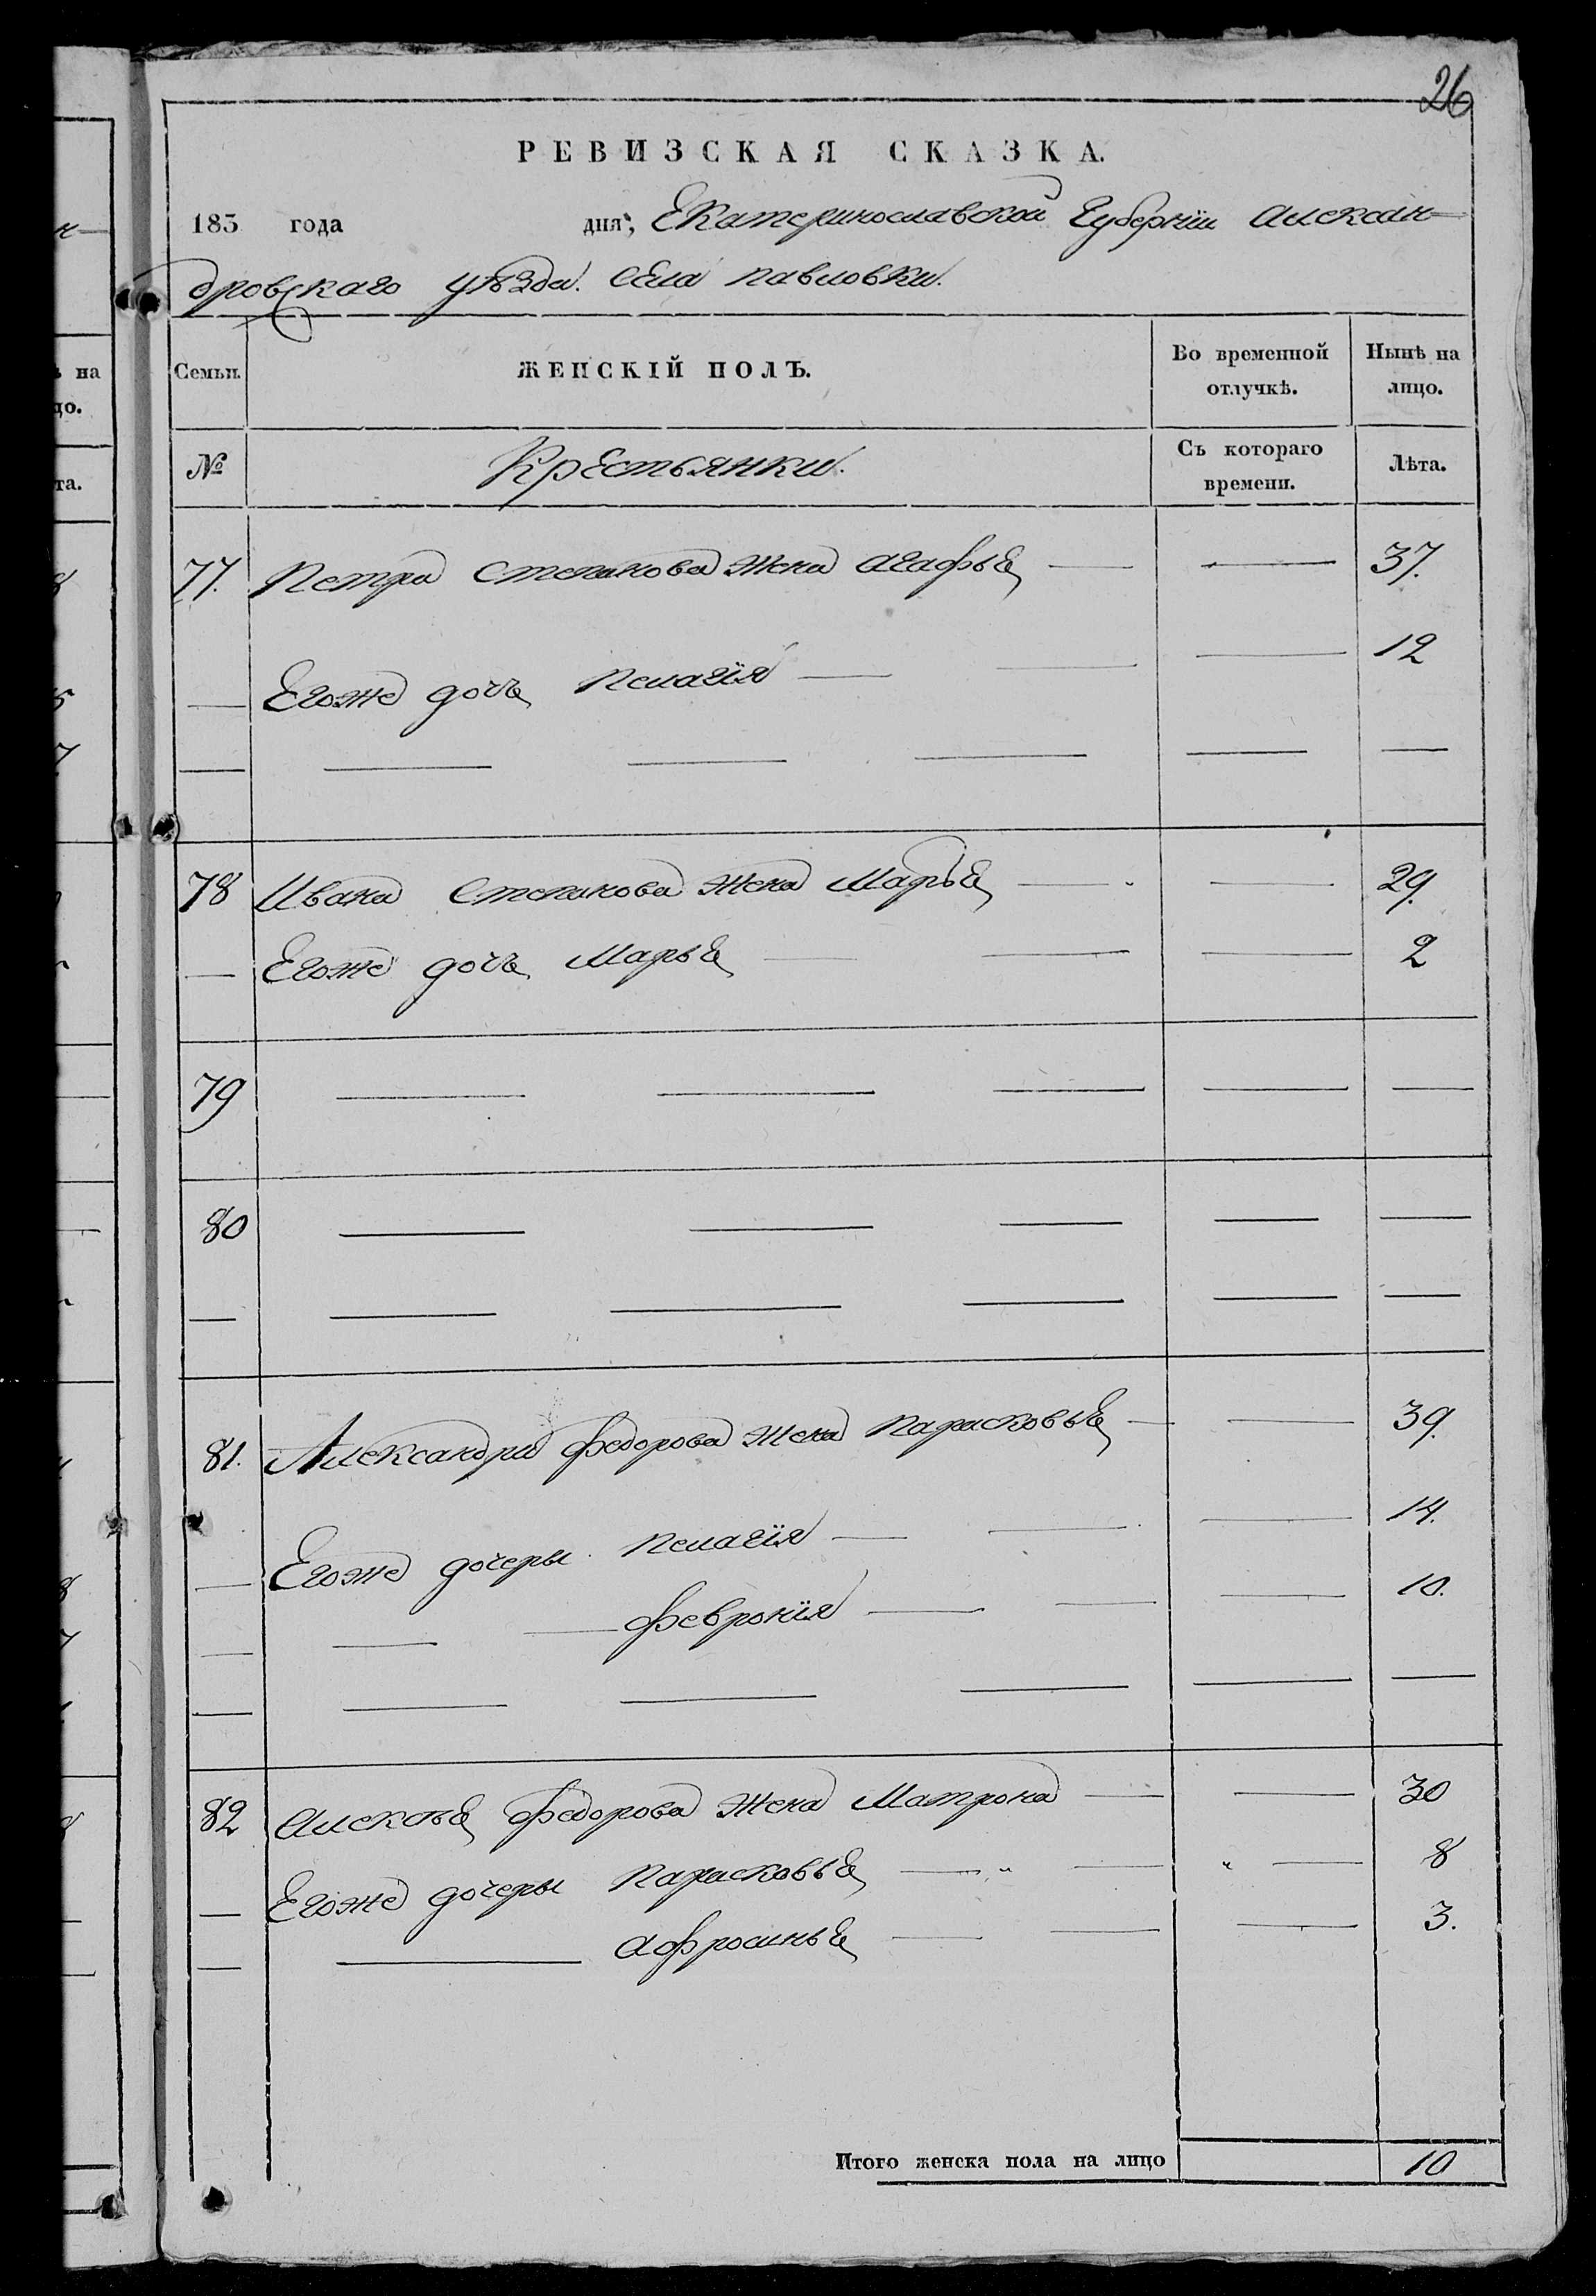 26
РЕВИЗСКАЯ СКАЗКА.
183 года дня, Екатеринославской Губерніи Алексан-
дровскаго уѣзда. Села Павловки.
Семьи. ЖЕНСКІЙ ПОЛЪ. Во временной отлучкѣ. Нынѣ на лицо.
№ Крестьянки. Съ котораго времени. Лѣта.
77. Петра Степанова жена Агафья — — 37.
— Егоже дочь Пелагія — — — 12
— — — — — —
78 Ивана Степанова жена Марья — — 29.
— Егоже дочь Марья — — — 2
79 — — — — —
80 — — — — —
— — — — — —
81. Александра Федорова жена Парасковья — — 39.
— Егоже дочеры Пелагія — — — 14.
— — — Февронія — — — 10.
— — — — — —
82 Алексѣя Федорова жена Матрона — — 30
— Егоже дочеры Парасковья — „ — „ — 8
— — Афросинья — — — 3.
Итого женска пола на лицо 10
на
цо.
та.